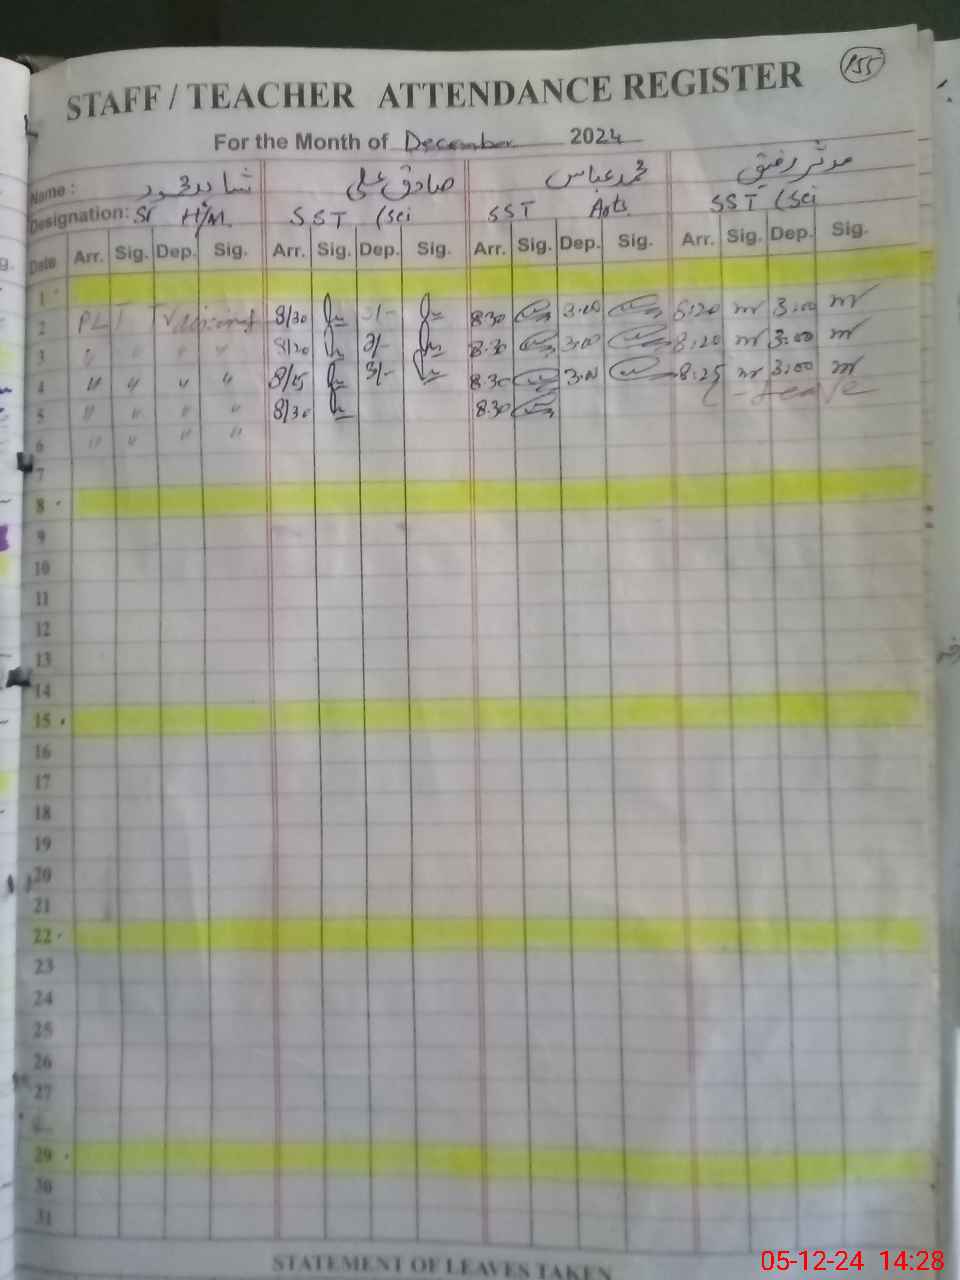 155
STAFF / TEACHER ATTENDANCE REGISTER
For the Month of December 2024
Name : صادق علی محمد عباس مدثر رفیق
Designation: Sr H/M. SST (Sci SST Arts. SST (Sci
Date Arr. Sig. Dep. Sig. Arr. Sig. Dep. Sig. Arr. Sig. Dep. Sig. Arr. Sig. Dep. Sig.
1
2 8/30 3/- 8.30 3.00 8.20 3.00
3 " " " " 8/20 3/- 8.30 3.00 8.20 3.00
4 " " " " 8/15 3/- 8.30 3.00 8.25 3.00
5 " " " " 8/30 8.30 C-Leave
6 " " " "
7
8
9
10
11
12
13
14
15
16
17
18
19
20
21
22
23
24
25
26
27
29
30
31
STATEMENT OF LEAVES TAKEN
05-12-24 14:28